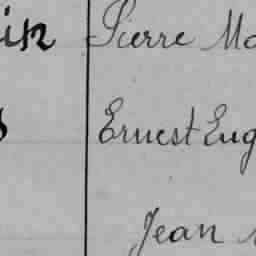 in Pierre Ma
Ernest Eug
Jean